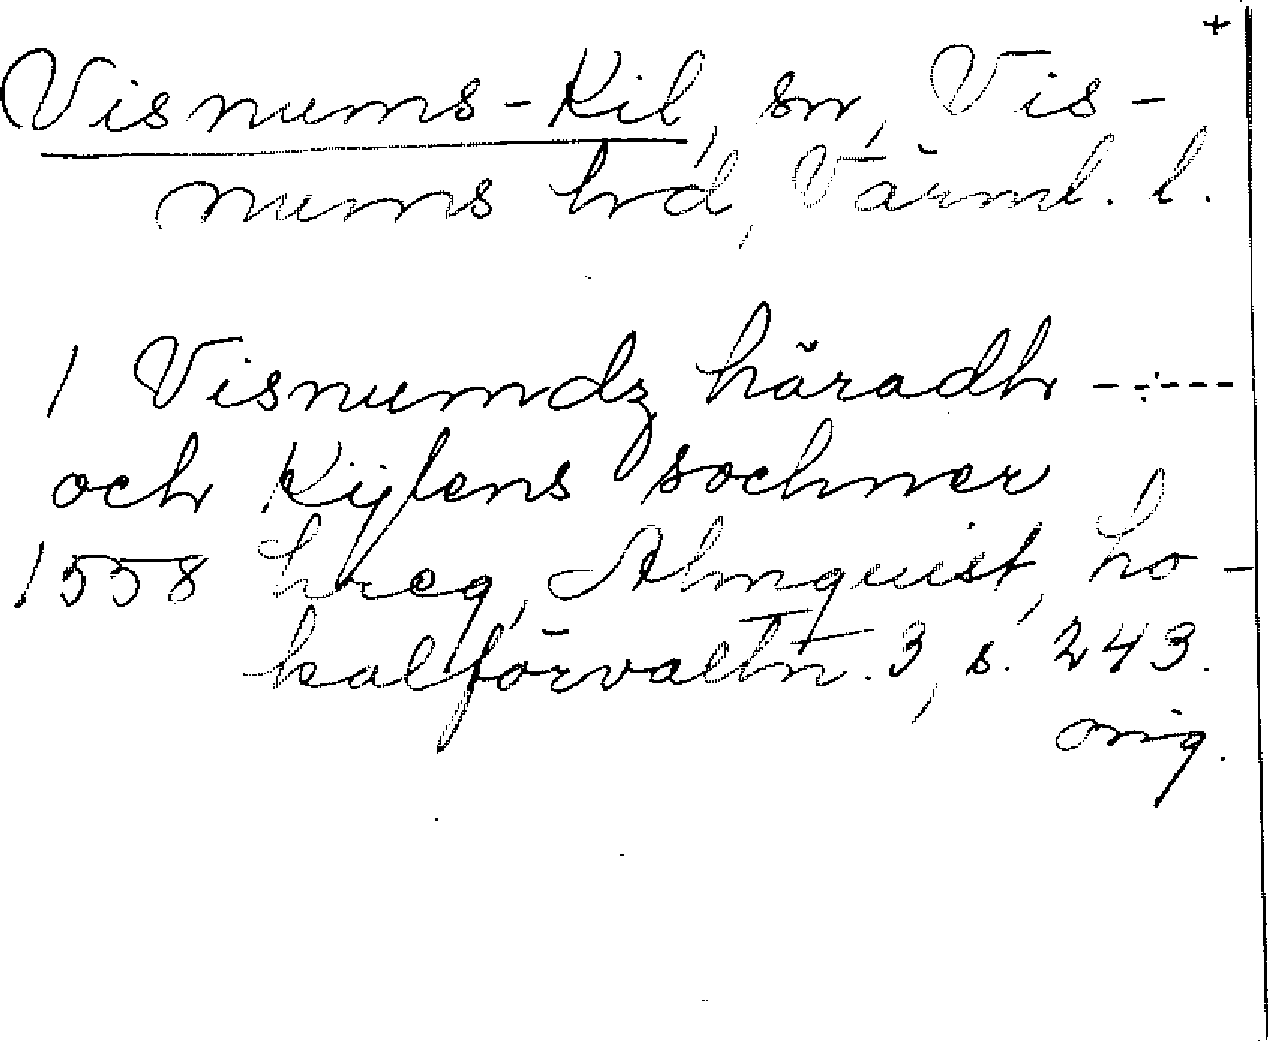 +
Visnums-Kil, sn, Vis-
nums hd, Värml. l.
1 Visnumdz häradh ------
och Kijlens sochner
1558 hreg, Almquist, Lo-
kalförvaltn. 3, s. 243.
orig.